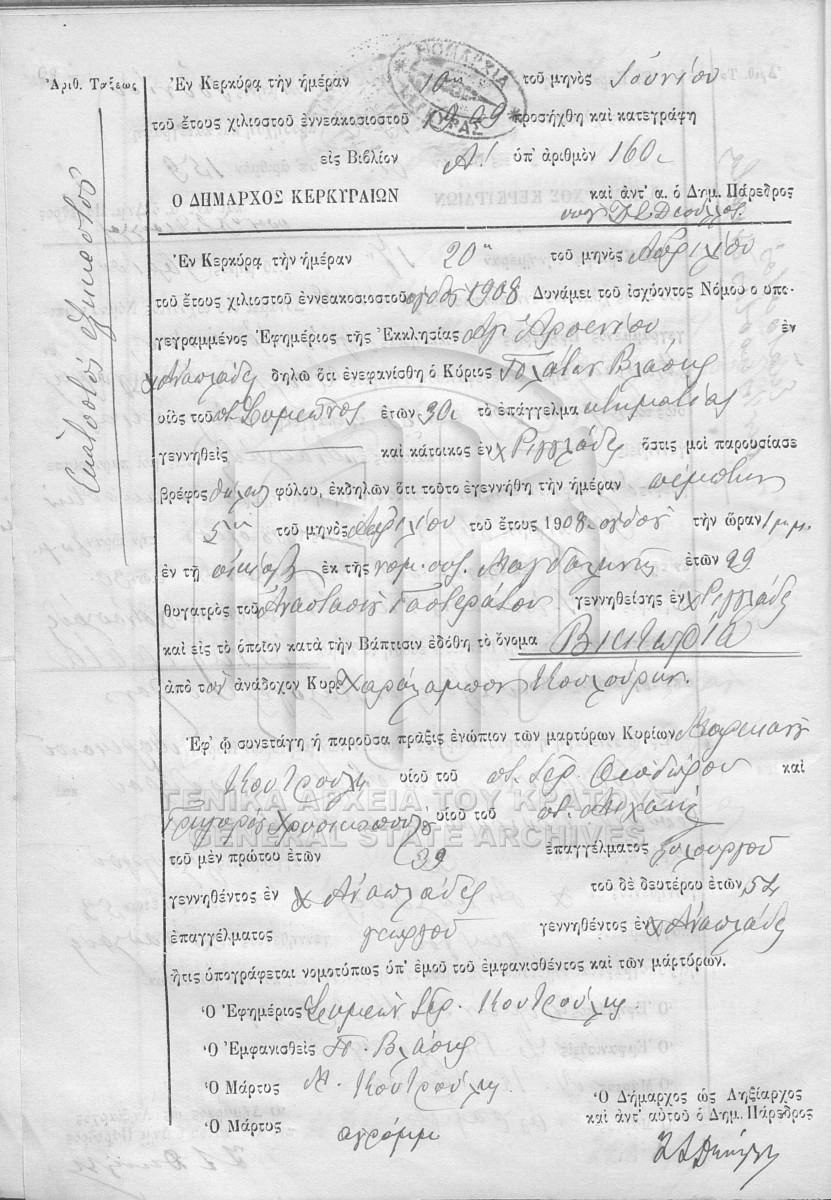 Ἀριθ. Τάξεως
Ἑκατοστός ἑξηκοστός
ΔΗΜΑΡΧΙΑ
ΚΕΡΚΥΡΑΣ
Ἐν Κερκύρᾳ τὴν ἡμέραν 10ην τοῦ μηνὸς Ἰουνίου
τοῦ ἔτους χιλιοστοῦ ἐννεακοσιοστοῦ 1909 προσήχθη καὶ κατεγράφη
εἰς Βιβλίον Α! ὑπ' ἀριθμὸν 160
Ο ΔΗΜΑΡΧΟΣ ΚΕΡΚΥΡΑΙΩΝ καὶ ἀντ' α. ὁ Δημ. Πάρεδρος
Ἐν Κερκύρᾳ τὴν ἡμέραν 20ην τοῦ μηνὸς Ἀπριλίου
τοῦ ἔτους χιλιοστοῦ ἐννεακοσιοστοῦ ὀγδόου 1908 Δυνάμει τοῦ ἰσχύοντος Νόμου ο υπο-
γεγραμμένος Ἐφημέριος τῆς Ἐκκλησίας Ἁγ. Ἀρσενίου ἐν
χ Ἀναπλάδες δηλῶ ὅτι ἐνεφανίσθη ὁ Κύριος Βλάσης
υἱὸς τοῦ ποτ. Συμεῶνος ἐτῶν 30 τὸ ἐπάγγελμα κτηματίας
γεννηθεὶς καὶ κάτοικος ἐν χ Ριγγλάδες ὅστις μοι παρουσίασε
βρέφος θήλεος φύλου, ἐκδηλῶν ὅτι τοῦτο ἐγεννήθη τὴν ἡμέραν πέμπτην
5ην τοῦ μηνὸς Ἀπριλίου τοῦ ἔτους 1908 ὀγδόου τὴν ὥραν 1 μ.μ.
ἐν τῇ οἰκίᾳ ἐκ τῆς νομ. συζ. Μαγδαληνῆς ἐτῶν 29
θυγατρὸς τοῦ Ἀναστασίου Γαστεράτου γεννηθείσης ἐν χ Ριγγλάδες
καὶ εἰς τὸ ὁποῖον κατὰ τὴν Βάπτισιν ἐδόθη τὸ ὄνομα Βικτωρία
ἀπὸ τὸν ἀνάδοχον Κυρ. Χαράλαμπον Κουλούρην.
Ἐφ' ᾧ συνετάγη ἡ παροῦσα πρᾶξις ἐνώπιον τῶν μαρτύρων Κυρίων
Κουτρούλη υἱοῦ τοῦ ποτ. ἱερ. Θεοδώρου καὶ
Γρηγόρης Χρυσικόπουλος υἱοῦ τοῦ ποτ. Μιχαήλ
ΓΕΝΙΚΑ ΑΡΧΕΙΑ ΤΟΥ ΚΡΑΤΟΥΣ
GENERAL STATE ARCHIVES
τοῦ μὲν πρώτου ἐτῶν 39 ἐπαγγέλματος ξυλουργοῦ
γεννηθέντος ἐν χ Ἀναπλάδες τοῦ δὲ δευτέρου ἐτῶν 54
ἐπαγγέλματος γεωργοῦ γεννηθέντος ἐν χ Ἀναπλάδες
ἥτις ὑπογράφεται νομοτύπως ὑπ' ἐμοῦ τοῦ ἐμφανισθέντος καὶ τῶν μαρτύρων.
Ὁ Ἐφημέριος Συμεών Ἱερ. Κουτρούλης
Ὁ Ἐμφανισθεὶς Π. Βλάσης
Ὁ Μάρτυς Μ. Κουτρούλης
Ὁ Μάρτυς ἀγράμμ.
Ὁ Δήμαρχος ὡς Ληξίαρχος
καὶ ἀντ' αὐτοῦ ὁ Δημ. Πάρεδρος